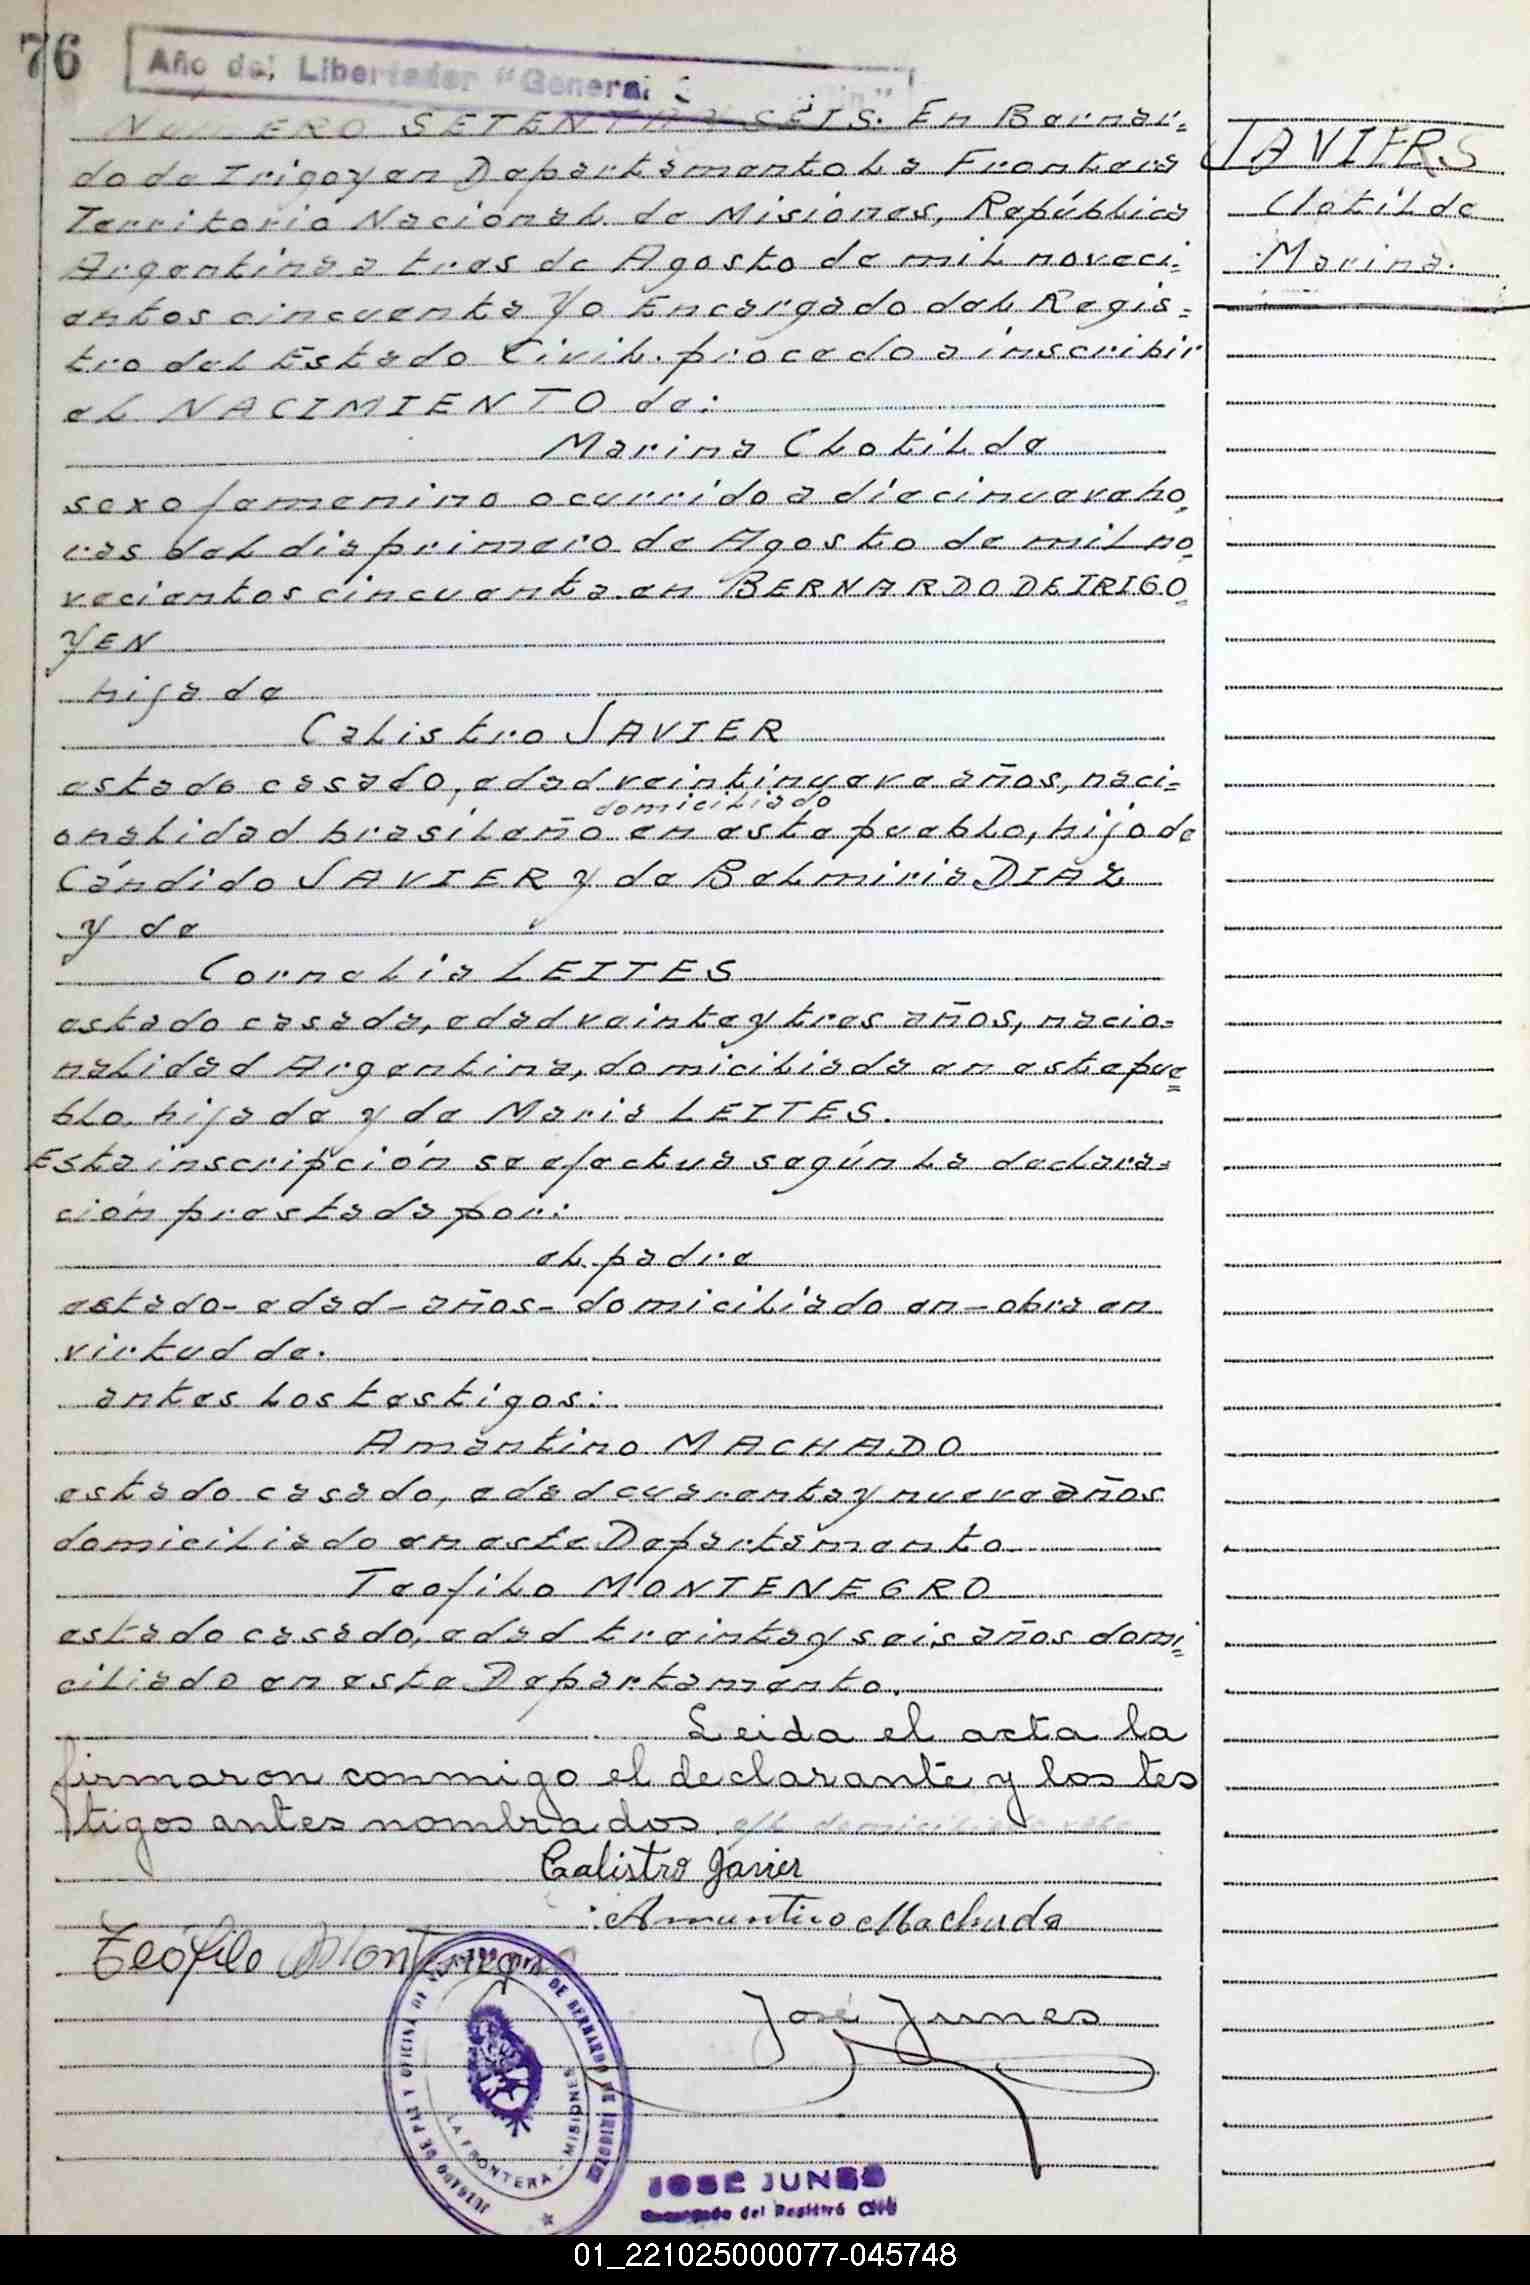 76
Año del Libertador "General
NUMERO SETENTA Y SEIS. En Bernar=
do de Irigoyen Departamento La Frontera
Territorio Nacional de Misiones, República
Argentina a tres de Agosto de mil noveci=
entos cincuenta Yo Encargado del Regis=
tro del Estado Civil. procedo a inscribir
el NACIMIENTO de:
Marina Clotilde
sexo femenino ocurrido a diecinueve ho=
ras del dia primero de Agosto de mil no=
vecientos cincuenta en BERNARDO DE IRIGO=
YEN
hija de
Calistro JAVIER
estado casado, edad veintinueve años, naci=
domiciliado
onalidad brasileño en este pueblo, hijo de
Cándido JAVIER y de Belmiria DIAZ
y de
Cornelia LEITES
estado casada, edad veinte y tres años, nacio=
nalidad Argentina, domiciliada en este pue=
blo. hija de y de Maria LEITES.
Esta inscripción se efectua según la declara=
ción prestada por:
el padre
estado- edad- años- domiciliado en- obra en
virtud de.
antes los testigos:
Amantino MACHADO
estado casado, edad cuarenta y nueve años
domiciliado en este Departamento
Teofilo MONTENEGRO
estado casado, edad treinta y seis años domi=
ciliado en este Departamento.
Leida el acta la
firmaron conmigo el declarante y los tes
tigos antes nombrados. e/l domiciliado vale
Calistro Javier
Amantino Machado
Teófilo Montenegro
José Junes
JUZGADO DE PAZ Y OFICINA DE DE BERNARDO DE IRIGOYEN
LA FRONTERA - MISIONES
JOSE JUNES
Encargado del Registro Civil
JAVIERS
Clotilde
Marina.
01_221025000077-045748